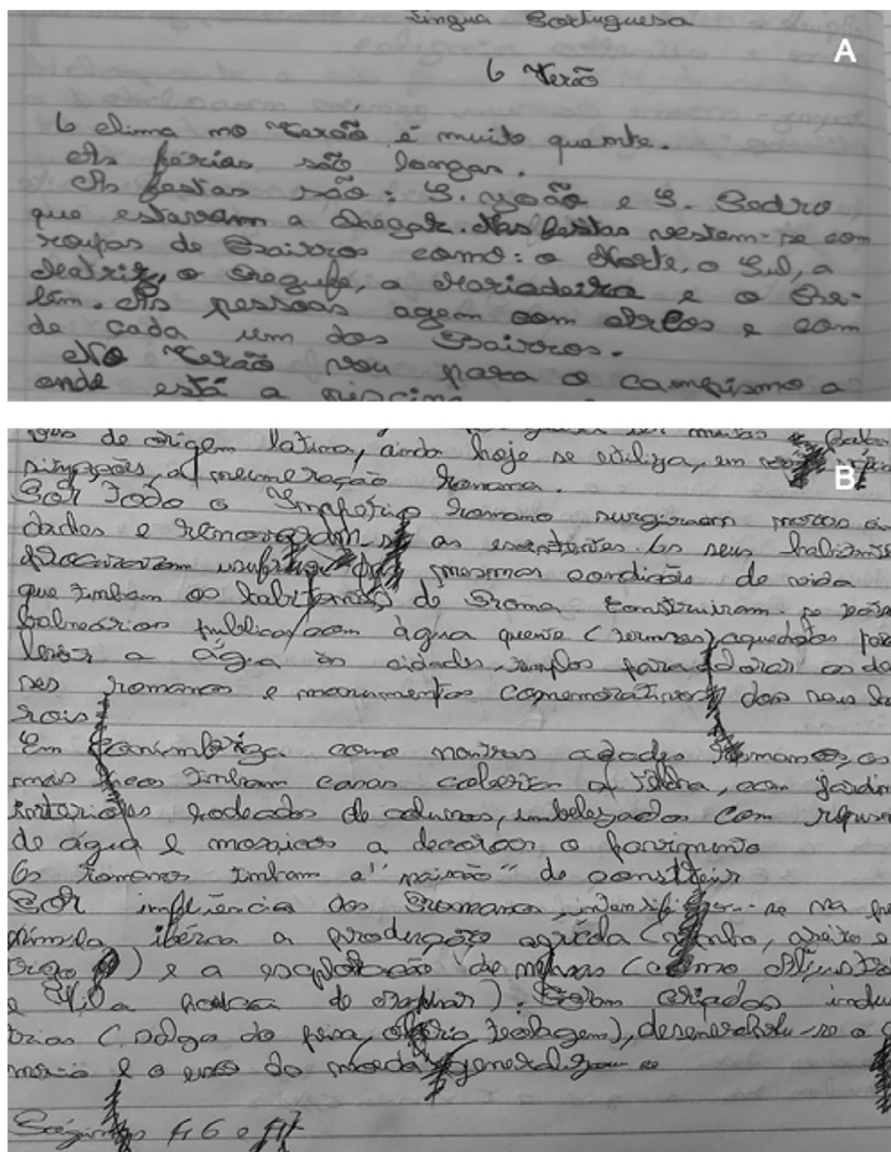 Língua Portuguesa
A
O Verão
O clima no Verão é muito quente.
As férias são longas.
As festas são: S. João e S. Pedro
que estavam a chegar. Nas festas vestem-se com
roupas de Bairros como: o Norte, o Sul, a
Matriz, o Regufe, a Mariadeira e o Be-
lém. As pessoas agem com arcos e com
de cada um dos Bairros.
No Verão vou para o campismo a
onde está a piscina
de origem latina, ainda hoje se utiliza, em
B
situações, a numeração Romana.
Por Todo o Império Romano surgiram novas ci
dades e renovaram-se as existentes. Os seus habitantes
procuravam usufruir das mesmas condições de vida
que tinham os habitantes de Roma Construiram-se
balneários publicos com água quente (termas) aquedutos para
levar a água às cidades, templos para adorar os de
ses romanos e monumentos comemorativos dos seus he
rois
Em Conimbriga como noutras cidades romanas, os
mais ricos tinham casas cobertas a telha, com jardins
interiores rodeados de colunas, embelezados com repuxos
de água e mosaicos a decorar o pavimento
Os romanos tinham a "paixão" de construir
Por influência dos Romanos, intensificou-se na
península ibérica a produção agrícola (vinho, azeite e
trigo) e a exploração de minas (como Aljustrel
e a de). Foram criadas indus
trias (salga do peixe, olaria, tecelagem), desenvolveu-se o
e o uso da moeda generalizou-se
Páginas 116 e 117